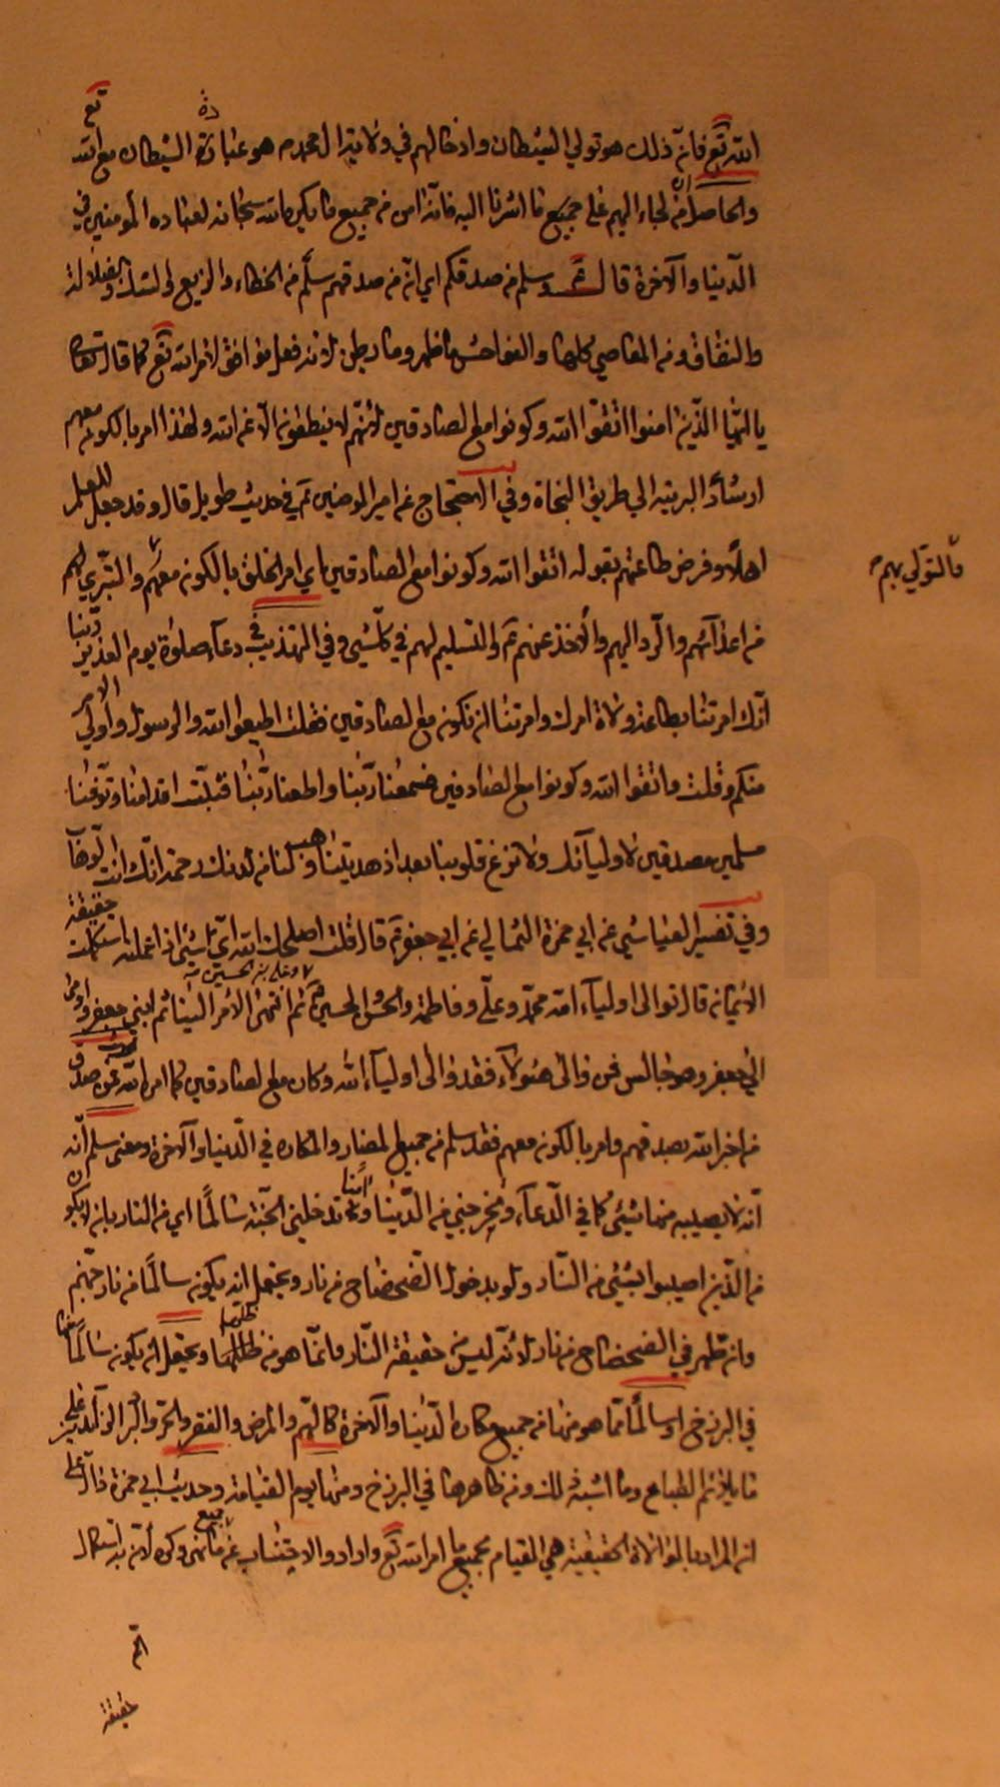 الله تع فانّ ذلك هو تولي الشيطان وادخالهم في ولايته المحرم هو عبادة الشيطان مع الله تع
والحاصل انه لجاء اليهم على جميع ما اشرنا اليه فانه امن من جميع ما يكره الله سبحانه لعباده المؤمنين في
الدّنيا والآخرة قال عم وسلم من صدقكم اي انّه من صدقهم سلم من الخطاء والزيغ والشك والضلالة
والنفاق ومن المعاصي كلها والفواحش ما ظهر وما بطن لانه فعل موافق لامر الله تع كما قال تعالى
يا ايّها الذّين امنوا اتّقوا الله وكونوا مع الصادقين لانّهم لا ينطقون الّا عن الله ولهذا امر بالكون معهم
ارشاد البرية الى طريق النجاة وفي الاحتجاج عن امير المؤمنين عم في حديث طويل قال وقد جعل للعلم
اهلاً وفرض طاعتهم بقوله اتقوا الله وكونوا مع الصادقين اي امر الخلق بالكون معهم والتبري لهم
فالتولي بهم
من اعدائهم والرّد اليهم والاخذ عنهم عم والتسليم لهم في كل شيء وفي التهذيب في دعاء صلوة يوم الغدير ربّنا
انّك امرتنا بطاعة ولاة امرك وامرتنا ان نكون مع الصادقين فقلت اطيعوا الله والرسول واولي الامر
منكم وقلت واتقوا الله وكونوا مع الصادقين فسمعنا ربّنا واطعنا ربّنا فثبّت اقدامنا وتوفّنا
مسلمين مصدقين لاوليآئك ولا تزغ قلوبنا بعد اذ هديتنا وهب لنا من لدنك رحمة انّك انت الوهّاب
وفي تفسير العياشي عن ابي حمزة الثمالي عن ابي جعفر عم قال قلت اصلحك الله اي شيء اذا عملته استكملت حقيقة
الايمان قال توالي اولياء الله محمد وعلّي وفاطمة والحسن والحسين وعلي بن الحسين ثم انتهى الامر الينا ثم ابني جعفر واومى
الى جعفر وهو جالس فمن والى هؤلاء فقد والى اولياء الله وكان مع الصادقين كما امره الله فمن صدق
من اخبر الله بصدقهم وامر بالكون معهم فقد سلم من جميع المضار والمكاره في الدّنيا والآخرة ومعنى سلم انّه
انّه لا يصيبه منها شيء كما في الدّعاء وتخرجني من الدّنيا آمنا وتدخلني الجنّة سالماً اي من النار بان لا يكون
من الّذين اصيبوا بشيء من النّار ولو بدخول الضحضاح من نار ويحتمل ان يكون سالماً من نار جهنم
وان طهر في الضحضاح من نار لانّه ليس حقيقة النّار وانما هو من ظلها ويحتمل ان يكون سالماً منها
في البرزخ او سالماً مما هو منها من جميع مكاره الدّنيا والآخرة كالهم والمرض والفقر والحر والبرد الزآئدين على
ما يلائم الطباع وما اشبه ذلك ومن ظاهرها في البرزخ ومنها يوم القيامة وحديث ابي حمزة دالّ على
ان المراد بالموالاة الحقيقية هي القيام بجميع ما امر الله تع واراد والاجتناب عن جميع ما نهى وكره لان به استكمال
حقيقة